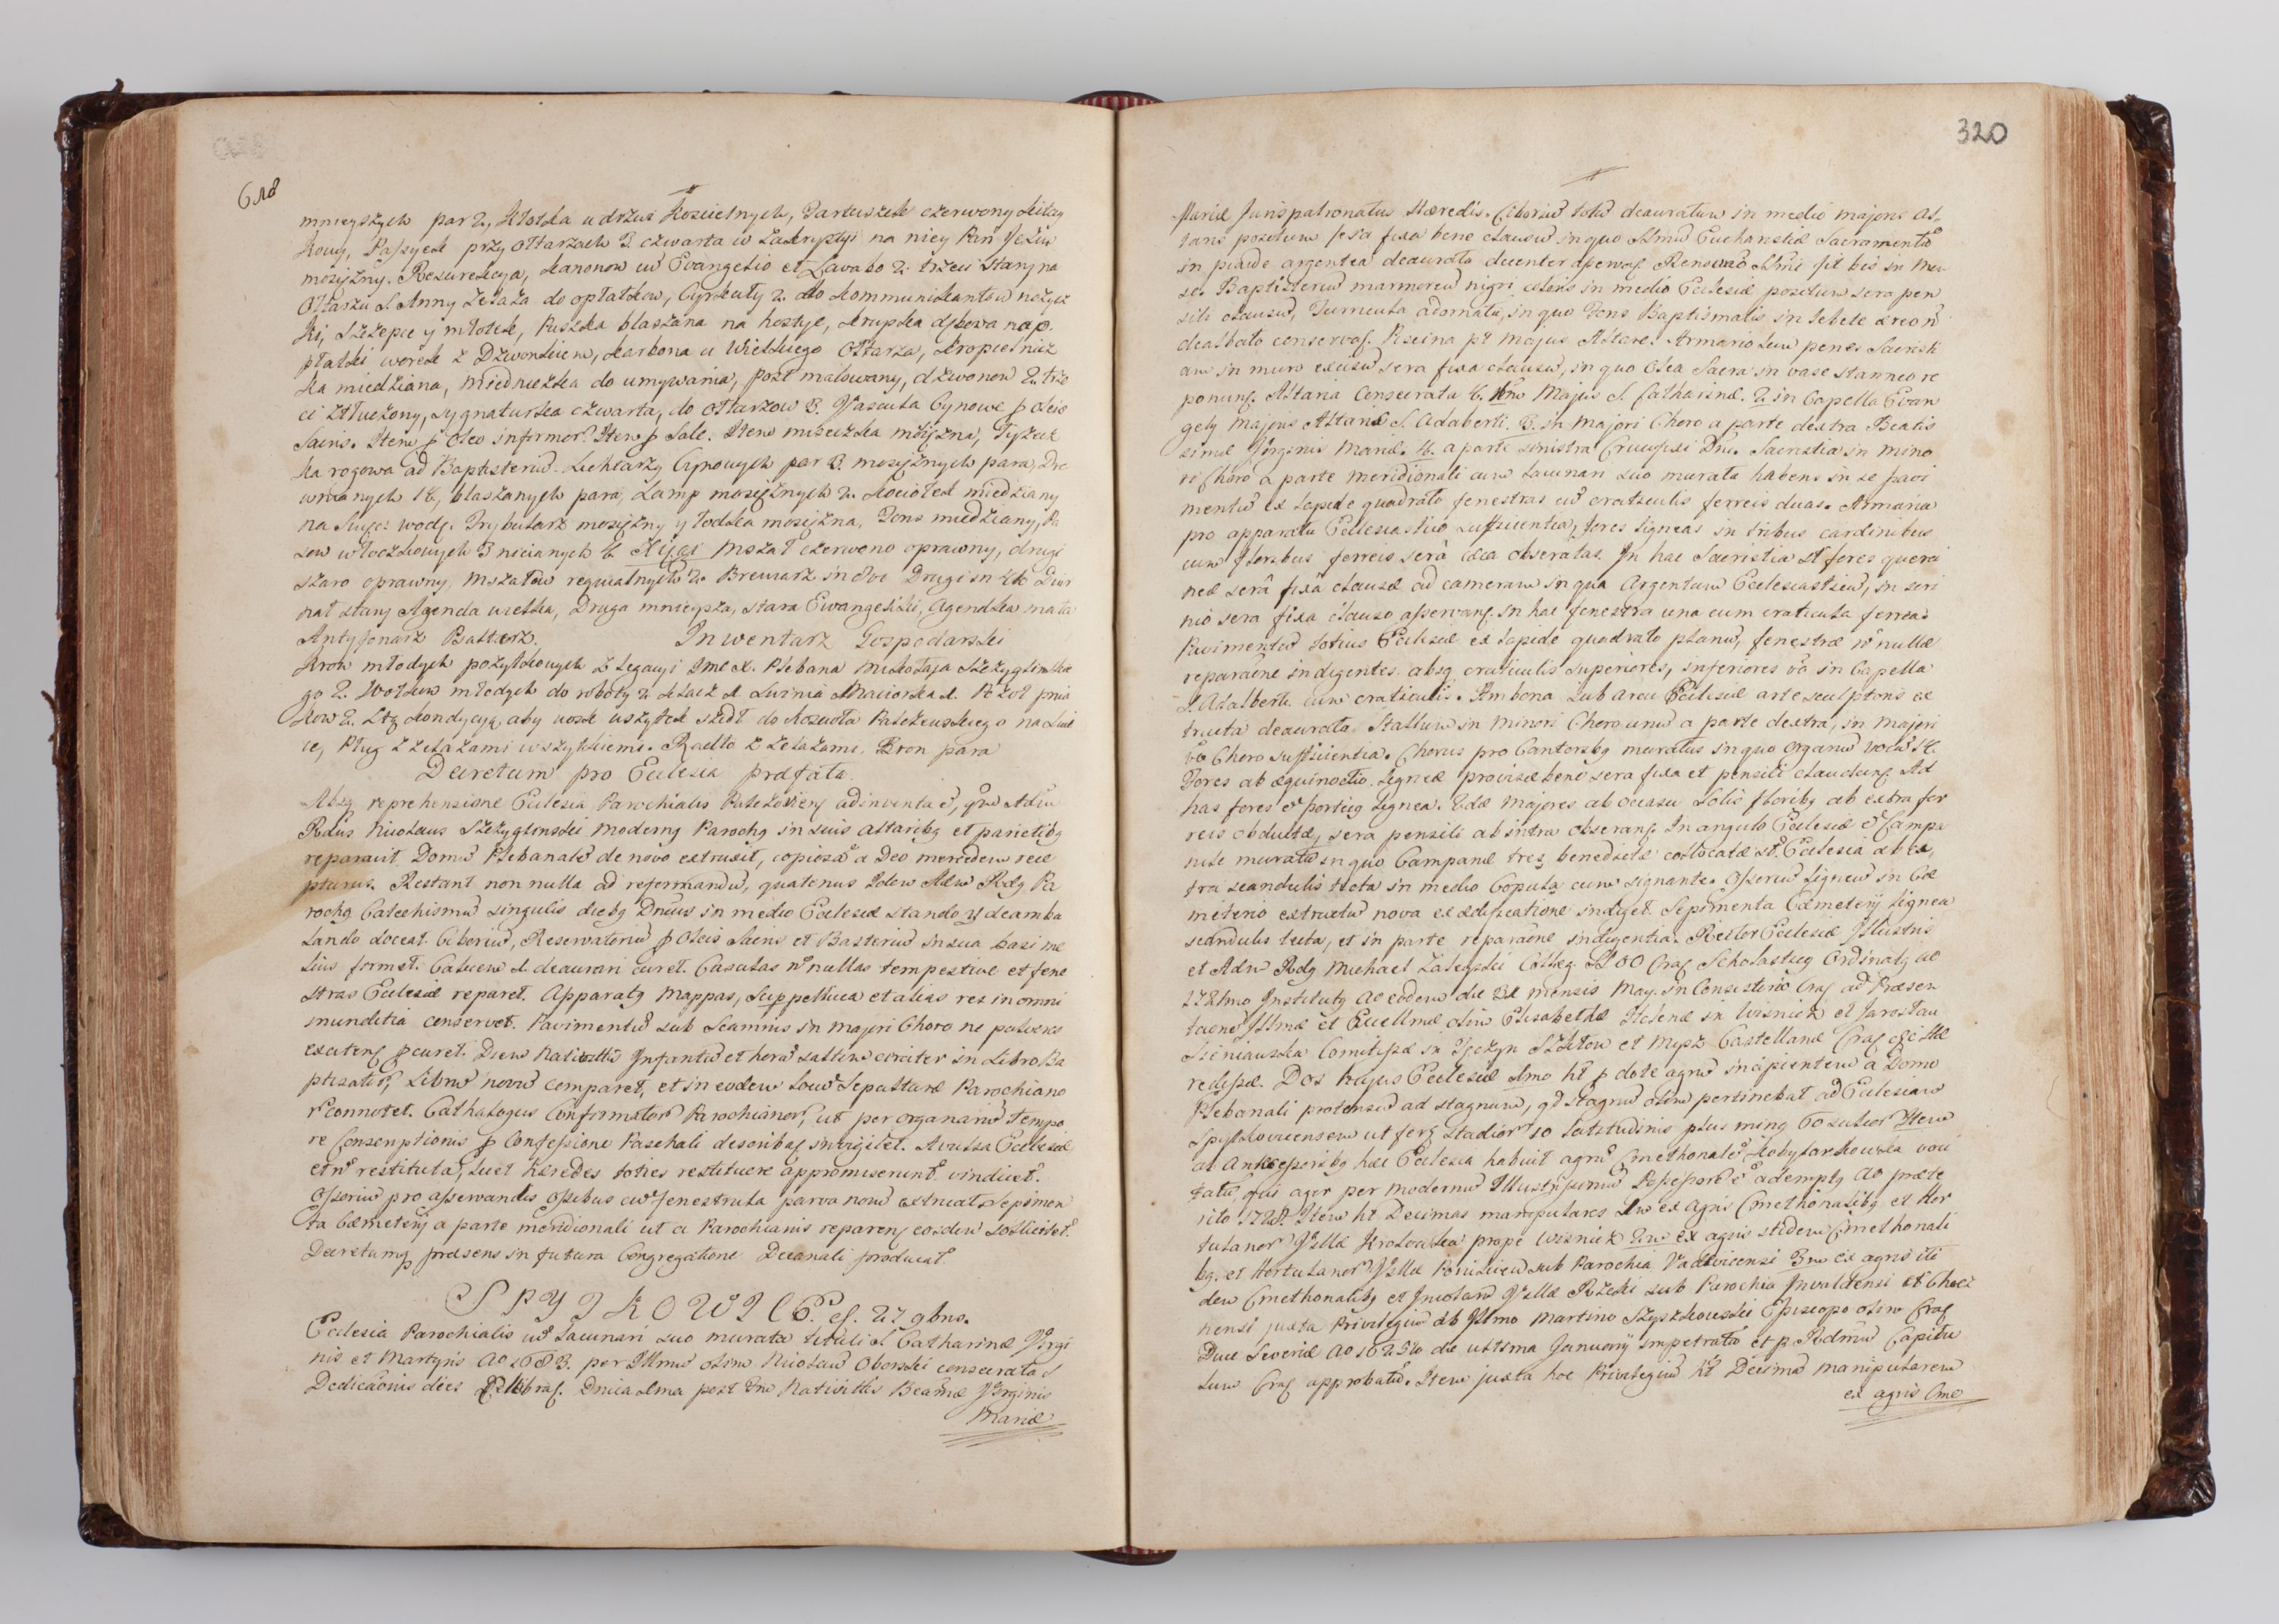 618
mnieyszych par 2, kłotka u drzwi koscielnych, Partuszek czerwony kitay
kowy, Passyek przy ołtarzach 3 czwarta w Zakrystyi na niey Pan Jezus
mosiężny. Resurekcya, kanonow cu Evangelio et Lavabo 2. trzeci stary na
Ołtarzu S. Anny żelaza do opłatkow, Cyrkuły 2. do kommunikantow nożycz
ki, szczypce y młotek, Puszka blaszana na hostye, skrupka dębowa na o
płatki worek z Dzwonkiem, karbona u Wielkiego Ołtarza, kropielnicz
ka miedziana, miedniczka do umywania, Pozł malowany, dzwonow 2. trze
ci ztłuczony, sygnaturka czwarta, do ołtarzow 3. Vascula Cynowe p oleis
Sacris. Item p Oleo infirmor. Item p Sale. Item miseczka mosiężna, Łyżecz
ka rogowa ad Baptisterium. Lichtarzy Cynowych par 3. mosiężnych para, Dre
wnianych 14, blaszanych para, Lamp mosiężnych 2. kociołek miedziany
na Swięc: wodę. Trybularz mosiężny y łodka mosiężna, Fons miedziany, Pa
sow włoczkowych 3 nicianych 6. Xięgi Mszał czerwono oprawny, drugi
szaro oprawny, Mszałow requialnych 2. Brewiarz in 8vo Drugi in 4to Diur
nał stary Agenda wielka, Druga mnieysza, stara Ewangeliki, Agendka mała
Antyfonarz Psałterz. Inwentarz Gospodarski
krow młodych pożytkowych z Legacyi Jmc X. Plebana Mikołaja Szczygłinskie
go 2. Wołow młodych do roboty 2. klacz 1. Swinia Maciorka 1. Pszczoł pnia
kow 2. z tą kondycyą, aby wosk wszytek szedł do kościoła Paleczuskiego na Swie
ce, Pług z żelazami wszytkiemi. Radło z żelazami, Bron para
Decretum pro Ecclesia præfata.
Absq reprehensione Ecclesia Parochialis adinventa e, qm Adm
Rdus Nicolaus Szczygłinski modernq Parochq in suis altaribq et parietibq
reparavit Domu Plebanale de novo extruxit, copiosa a Deo mercedem rece
pturus. Restant non nulla ad reformandu, quatenus Idem Adm Rdq Pa
rochq Catechismu singulis diebq Dnicis in medio Ecclesiæ stando vel deambu
lando doceat. Ciboriu, Reservatoriu p Oleis Sacris et Basteriu in sua basi me
lius formet. Calicem 1. deaurari curet. Casulas no nullas tempestive et fene
stras Ecclesiæ reparet. Apparatq Mappas, Suppellica et alias res in omni
munditia conservet. Pavimentu sub Scamnis in majori Choro ne pulveres
excitenq pcuret. Diem Nativitatis Infantu et hora saltem circiter in Libro Ba
ptisator, Librum novu comparet, et in eodem locu Sepulturæ Parochiano
r connotet. Cathalogus Confirmator Parochianor, ut per Organariu tempo
re Conscriptionis p Confessione Paschali describaq invigilet. Avulsa Ecclesiæ
et no restituta, licet hæredes toties restituere appromiserunt vindicet.
Ossoriu pro asservandis ossibus cu fenestrula parva novu extruat. Sepimen
ta Cæmeterij a parte meridionali ut a Parochianis reparenq eosdem sollicitet.
Decretumq præsens in futura Congregatione Decanali producat.
SPYTKOWICE. ef. 27 9bris.
Ecclesia Parochialis cu Lacunari suo murata tituli S. Catharinæ Virgi
nis et Martyris Ao 1683. per Illmu olim Nicolau Oborski consecrata
Dedicaonis dies celebraq. Dnica 1ma post Nativitatis Beatæ Vrginis
Mariæ
320
Mariæ Juris patronatus Hæredis. Ciboriu totu deauratum in medio majoris al
taris positum sera fixa bene clausu in quo SSmu Eucharistiæ Sacramentu
in pixide argentea deaurata decenter asservaq Renovao SSmi fit bis in men
se. Baptisteriu marmoreu nigri coloris in medio Ecclesiæ positum sera pen
sili clausu, Turricula adornatu, in quo Fons Baptismalis in lebete æreo
dealbato conservaq. Piscina pt majus Altare. Armariolum penes Sacristi
am in muro excisu sera fixa clausu, in quo Olea Sacra in vase stanneo re
ponunq. Altaria consecrata 4. 1mu Majus S. Catharinæ. 2. in Capella Evan
gely majus Altaris S. Adalberti. 3. in majori Choro a parte dextra Beatis
simæ Virginis Mariæ. 4. a parte sinistra Crucifixi Dni. Sacristia in mino
ri Choro a parte meridionali cum Lacunari suo murata habens in se pavi
mentu ex lapide quadrato fenestras cu craticulis ferreis duas. Armaria
pro apparatu Ecclesiastico sufficientia, fores ligneas in tribus cardinibus
cum floribus ferreis serâ obseratas. In hac Sacristia st fores querci
neæ serâ fixâ clausæ ad cameram in qua Argentum Ecclesiasticu, in scri
nio sera fixa clauso asservanq. in hac fenestra una cum craticula ferrea.
Pavimentu totius Ecclesiæ ex lapide quadrato planu, fenestræ no nullæ
reparaone indigentes absq craticulis superiores, inferiores vo in Capella
S. Adalberti cum craticulis. Ambona sub arcu Ecclesiæ arte sculptoris ex
tructa deaurata. Stallum in minori Choro unu a parte dextra, in majori
vo Choro sufficientia. Chorus pro Cantoribq muratus in quo Organu vocu 14.
Fores ab æquinoctio ligneæ provisæ bene sera fixa et pensili claudunq. Ad
has fores e porticq lignea. Aliæ majores ab occasu Solis floribq ab extra fer
reis obductæ, sera pensili ab intra obseranq. In angulo Ecclesiæ e Campa
nile muratu in quo Campanæ tres benedictæ collocatæ st. Ecclesia ab ex,
tra scandulis tecta in medio Copula cum signante. Ossoriu ligneu in Cæ
miterio extructu nova exædificatione indiget. Sepimenta Cæmeterij lignea
scandulis tecta, et in parte reparaone indigentia. Rector Ecclesiæ Illustris
et Adm Rdq Michael Zalewski Colleg. OO Craq Scholasticq Ordinatq ao
Institutq ao eodem die mensis May. in Consistorio Craq ad Præsen
taone Illmæ et Excellmæ olim Elisabethæ Helenæ in Wisnicz et Jarosław
Sieniawska Comitissæ in Tęczyn Szkłow et Mysz Castellanæ Craq Hæ
redissæ. Dos hujus Ecclesiæ 1mo ht p dote agru incipientem a Domo
Plebanali protensu ad stagnum, qd stagnu olim pertinebat ad Ecclesiam
Spytkovicensem ut ferq Stadior 10 latitudinis plus minq 60 sulcor. Item
ab Antecessoribq hæc Ecclesia habuit agru Cmethonale Kobylarkowska voci
tatu, qui ager per modernu Illustrissimu Possessore e ademptq Ao præte
rito. Item ht Decimas manipulares 1mo ex agris Cmethonalibq et Hor
tulanor Villæ prope Wisnicz 2do ex agris itidem Cmethonali
bq, et Hortulanor Villæ sub Parochia Vadovicensi 3tio ex agris iti
dem Cmethonalibq et Incolaru Villæ Rzeki sub Parochia Inwaldensi et Chocz
nensi juxta Privilegiu ab Illmo Martino Szyszkowski Episcopo olim Craq
Duce Severiæ Ao die ultima January impetrato et p Rdmu Capitu
lum Craq approbatu. Item juxta hoc Privilegiu ht Decima manipularem
ex agris Cme